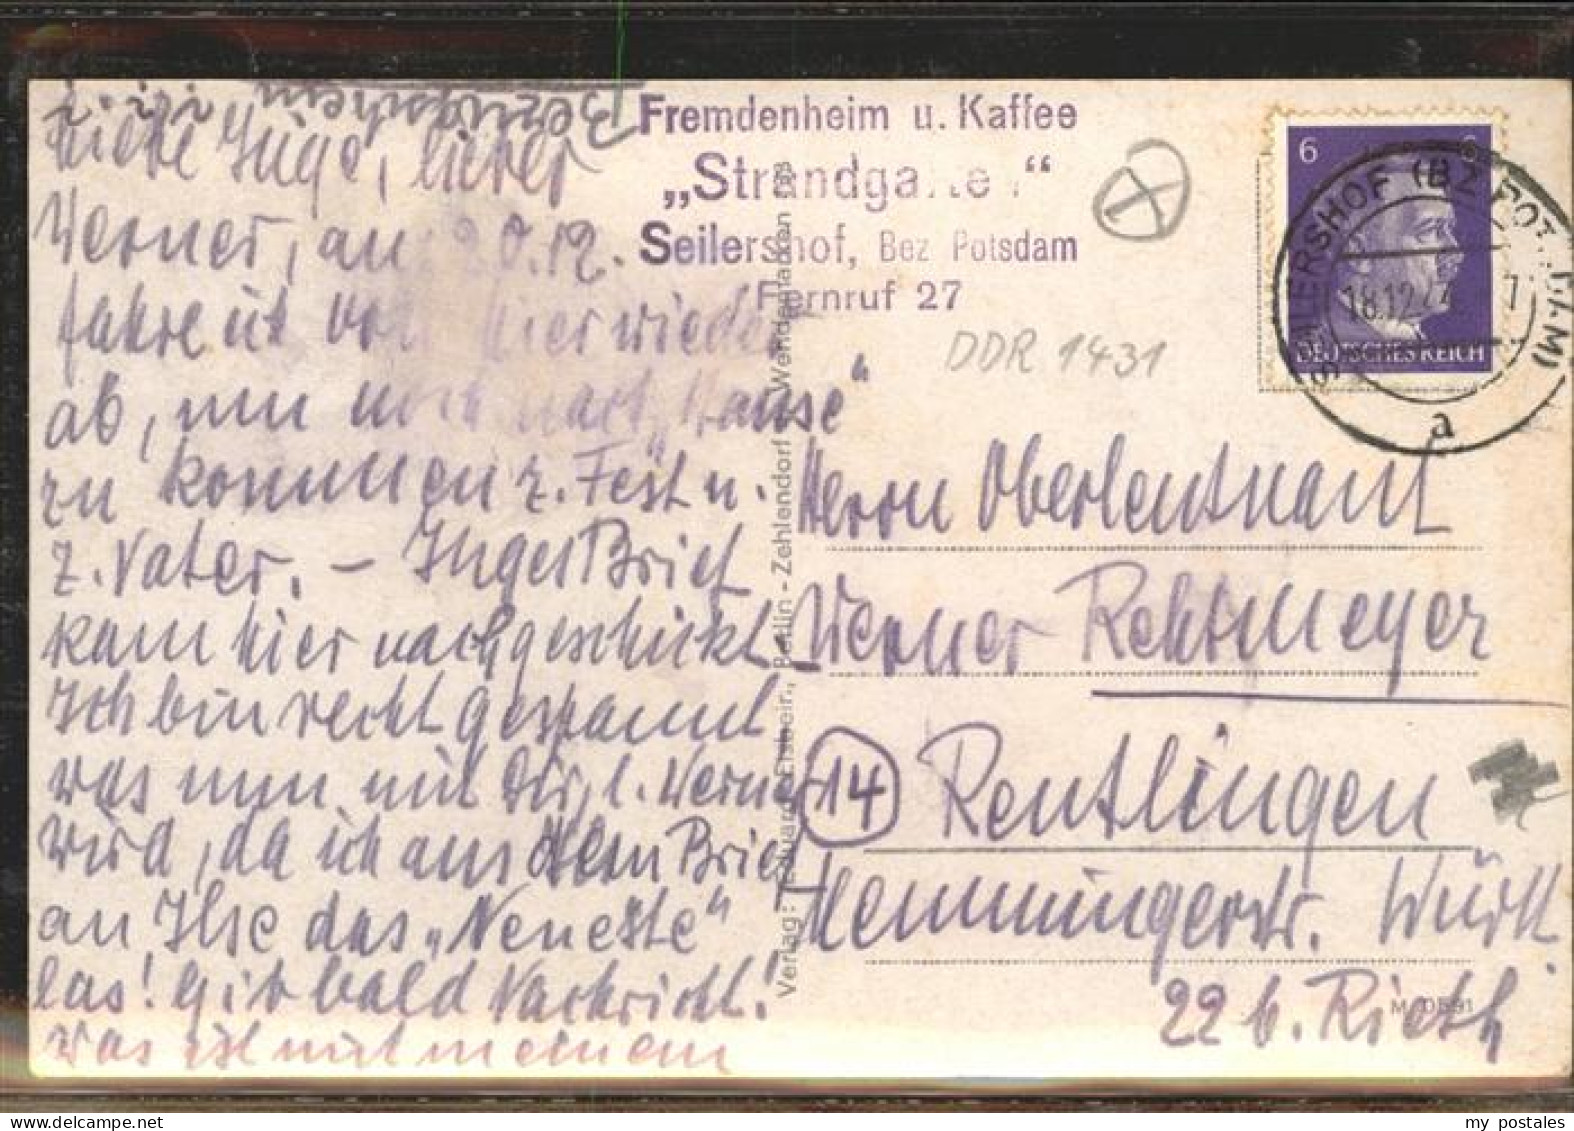 Bezugschein
Liebe Inge, lieber
Werner, am 20.12.
fahre ich von hier wieder
ab, um noch nach „Hause“
zu kommen z. Fest u.
z. Vater. – Inges Brief
kam hier nachgeschickt
Ich bin recht gespannt
was nun mit Dir, l. Werner
wird, da ich aus dem Brief
an Ilse das „Neueste“
las! Gib bald Nachricht!
Was ist mit meinem
Fremdenheim u. Kaffee
„Strandgarten“
Seilershof, Bez Potsdam
Fernruf 27
DDR 1431
6 6
DEUTSCHES REICH
SEILERSHOF (BZ POTSDAM)
18.12.
a
Herrn Oberleutnant
Werner Rehtmeyer
14 Reutlingen
Hemmingerstr. Württ
22 b. Rieth
Verlag: Eduard Elsbein, Berlin-Zehlendorf
M 0591
my postales